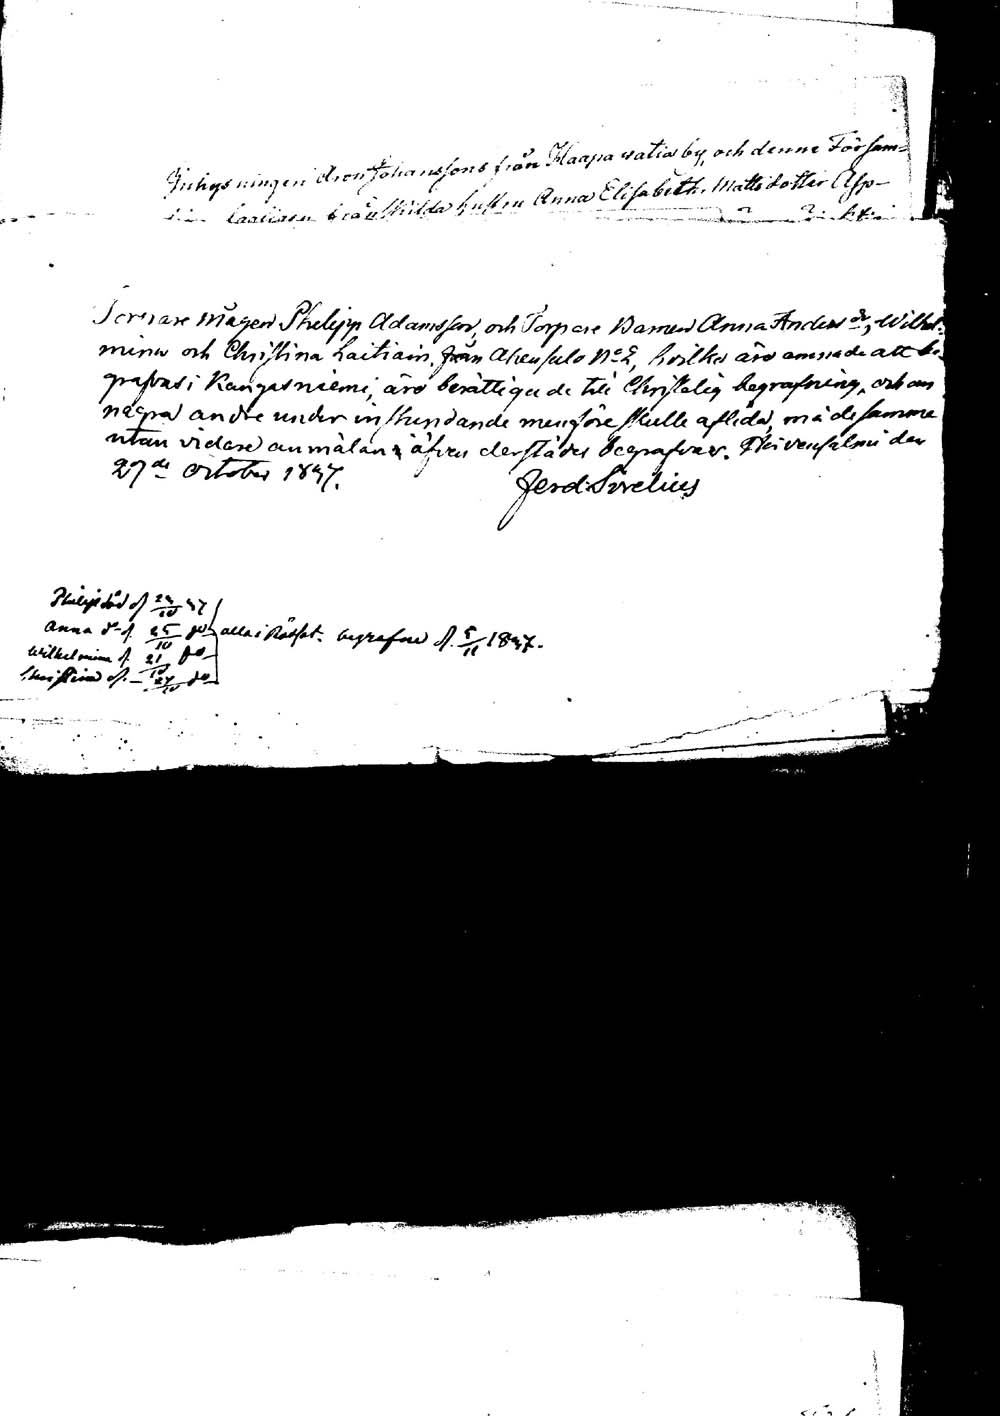 Inhysningen Aron Johanssons från Haapavatia by, och denne Församˍ
laatisen frånskilda hustru Anna Elisabeth Mattsdotter Asp-
Torpare Mågen Philipp Adamsson, och Torpare Barnen Anna Anders dr, Wilhel-
mina och Christina Laitiain, från Ahensalo No 2, hvilka äro ämnade att be-
grafvas i Kangasniemi, äro berättigade till Christelig begrafning, och om
några andre under instundande menföre skulle aflida, må desamme
utan vidare anmälan äfven derstädes begrafvas. Thivensalmi den
27de October 1847.
Ferd. Sirelius
Philip död d. 24/10 47
Anna do d. 25/10 do
Wilhelmina d. 21/10 do
Christina d. 27/10 do
alla i Rödsot. begrafne d. 5/11 1847.